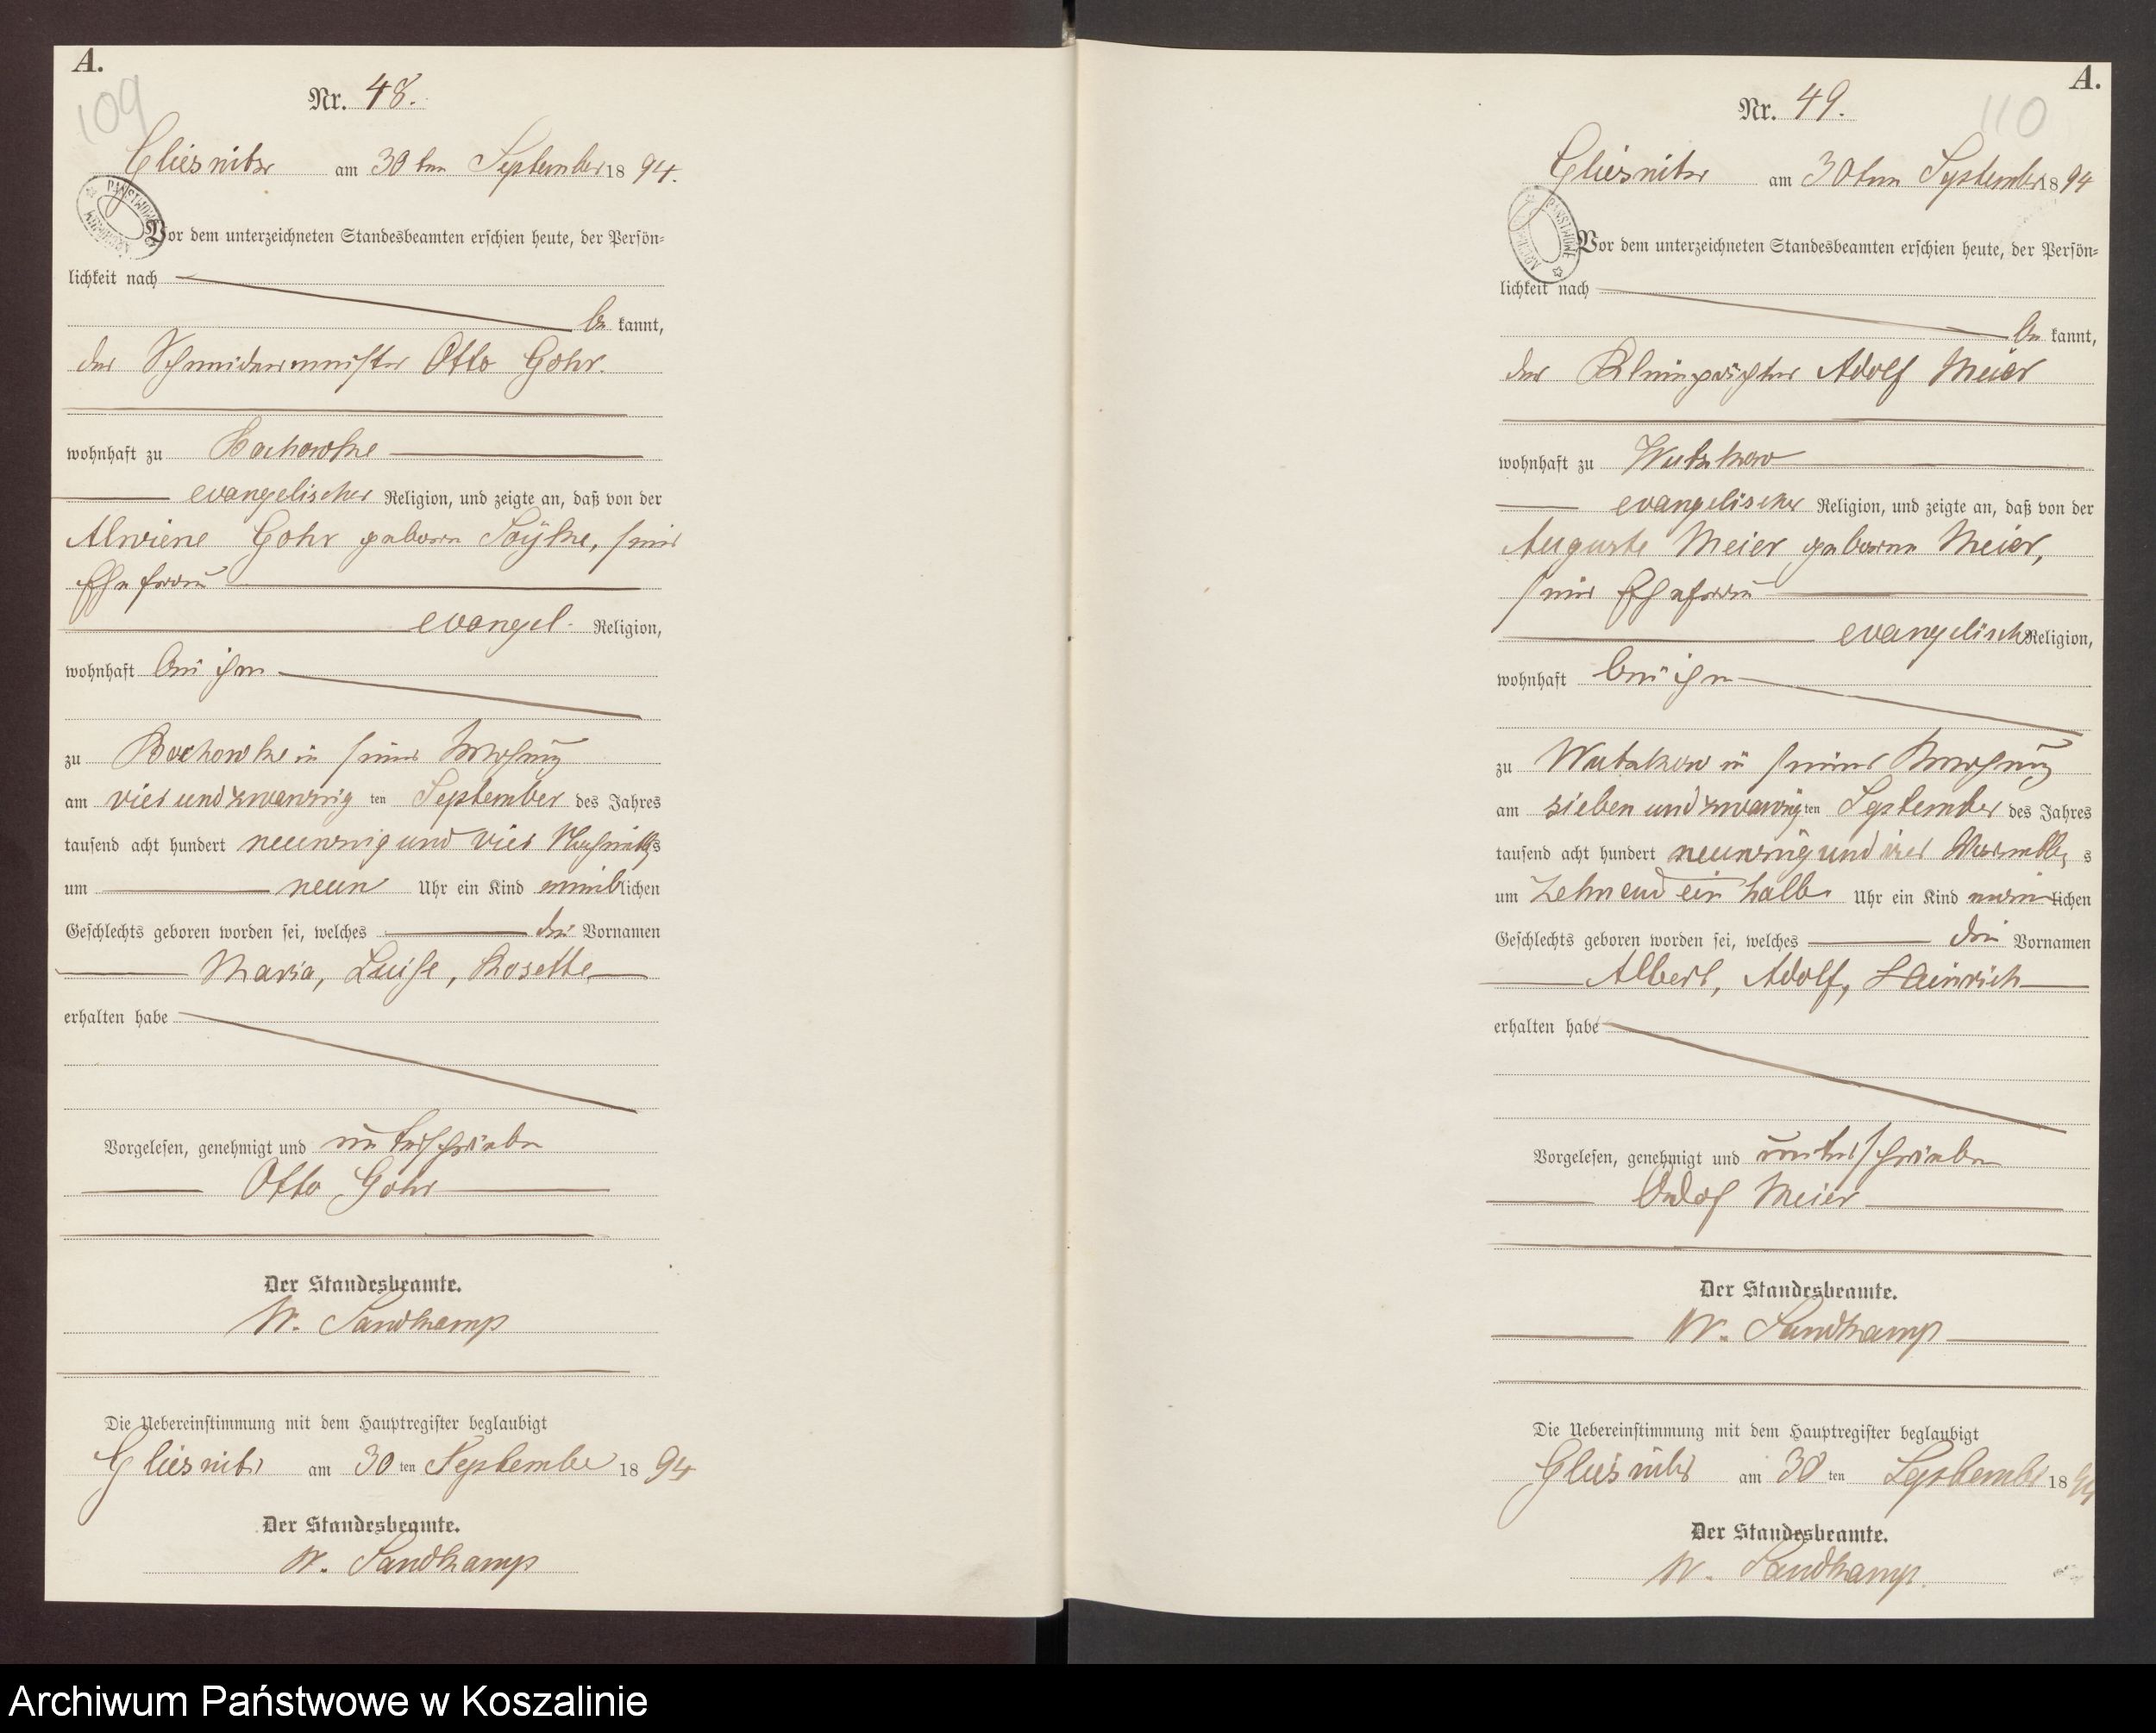 A.
109
Nr. 48.
Gliesnitz am 30ten September 18 94.
Vor dem unterzeichneten Standesbeamten erschien heute, der Persön-
lichkeit nach
be kannt,
der Schneidermeister Otto Gohr.
wohnhaft zu Bochowke
evangelischer Religion, und zeigte an, daß von der
Alwiene Gohr geborene seine
Ehefrau
evangel. Religion,
wohnhaft bei ihm
zu Bochowke in seiner Wohnung
am vier und zwanzig ten September des Jahres
tausend acht hundert neunzig und vier Nachmittags
um neun Uhr ein Kind weiblichen
Geschlechts geboren worden sei, welches die Vornamen
Maria, Luise, Rosette
erhalten habe
Vorgelesen, genehmigt und unterschrieben
Otto Gohr
Der Standesbeamte.
W. Sandkamp
Die Uebereinstimmung mit dem Hauptregister beglaubigt
Gliesnitz am 30 ten September 18 94
Der Standesbeamte.
W. Sandkamp
A.
110
Nr. 49.
Gliesnitz am 30ten September 18 94
Vor dem unterzeichneten Standesbeamten erschien heute, der Persön-
lichkeit nach
be kannt,
der Kleinpächter Adolf Meier
wohnhaft zu Wutzkow
evangelischer Religion, und zeigte an, daß von der
Auguste Meier geborene Meier,
seiner Ehefrau
evangelischer Religion,
wohnhaft bei ihm
zu Wutzkow in seiner Wohnung
am sieben und zwanzig ten September des Jahres
tausend acht hundert neunzig und vier Vormittags
um zehn und ein halb Uhr ein Kind männlichen
Geschlechts geboren worden sei, welches die Vornamen
Albert, Adolf, Heinrich
erhalten habe
Vorgelesen, genehmigt und unterschrieben
Adolf Meier
Der Standesbeamte.
W. Sandkamp
Die Uebereinstimmung mit dem Hauptregister beglaubigt
Gliesnitz am 30 ten September 18 94
Der Standesbeamte.
W. Sandkamp.
Archiwum Państwowe w Koszalinie